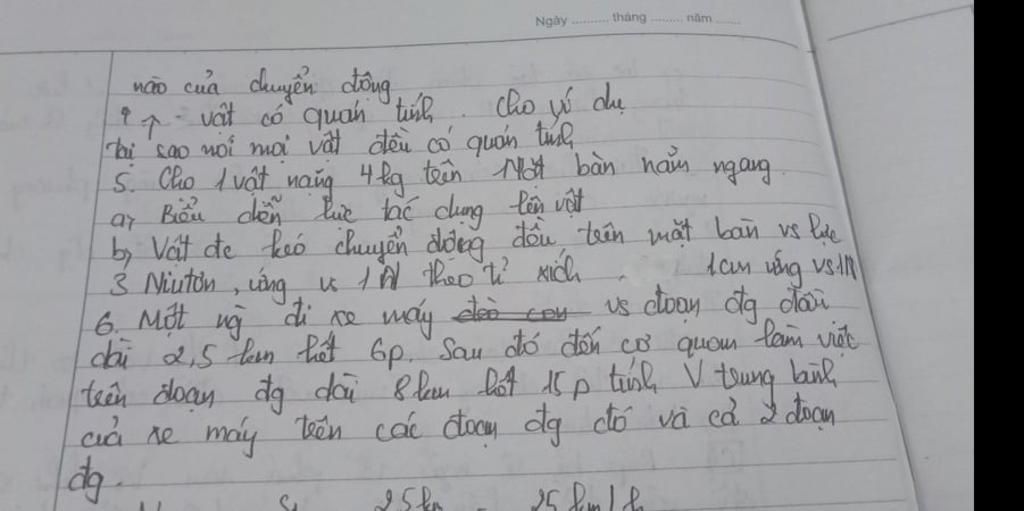 Ngày .......... tháng ......... năm .......
nào của chuyển động
vật có quán tính. Cho ví dụ
tại sao nói mọi vật đều có quán tính
5. Cho 1 vật nặng 4kg trên 1 bàn nằm ngang
a, Biểu diễn lực tác dụng lên vật
b, Vật đc kéo chuyển động đều trên mặt bàn vs lực
3 Niutơn, ứng vs 1N theo tỉ xích 1cm ứng vs 1N
6. Một ng đi xe máy vs đoạn đg đầu
dài 2,5 km hết 6p. Sau đó đến cơ quan làm việc
trên đoạn đg dài 8km hết 15p tính V trung bình
của xe máy trên các đoạn đg đó và cả 2 đoạn
đg.